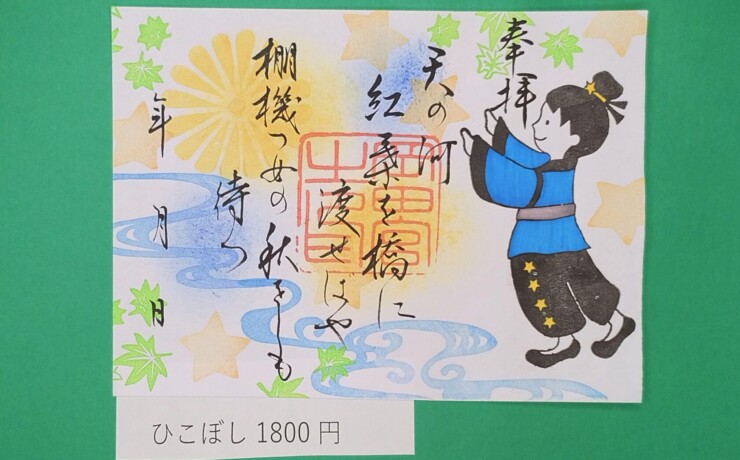 奉拝
天の河
紅葉を橋に
渡せばや
棚機つ女の
秋をしも
待つ
年 月 日
ひこぼし 1800 円